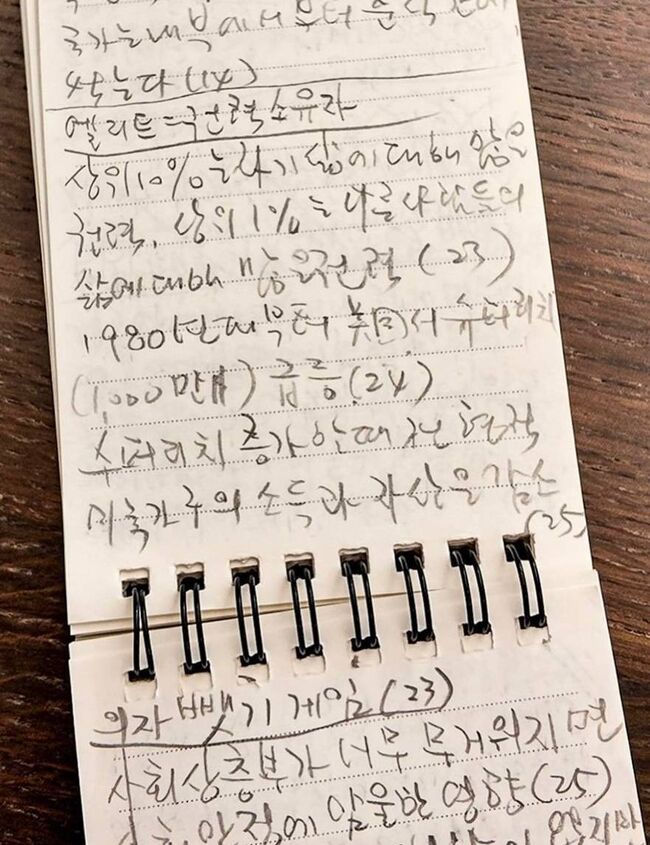 국가는 내부에서부터 순식간에
썩는다 (14)
엘리트 = 권력 소유자
상위 10%는 자기 삶에 대해 많은
권력, 상위 1%는 다른 사람들의
삶에 대해 많은 권력 (23)
1980년대부터 美国서 슈퍼리치
(1,000만 $) 급등 (24)
수퍼리치 증가할 때 전형적
미국가구의 소득과 자산은 감소
(25)
의자 뺏기 게임 (23)
사회상층부가 너무 무거워지면
사회 안정에 암울한 영향 (25)